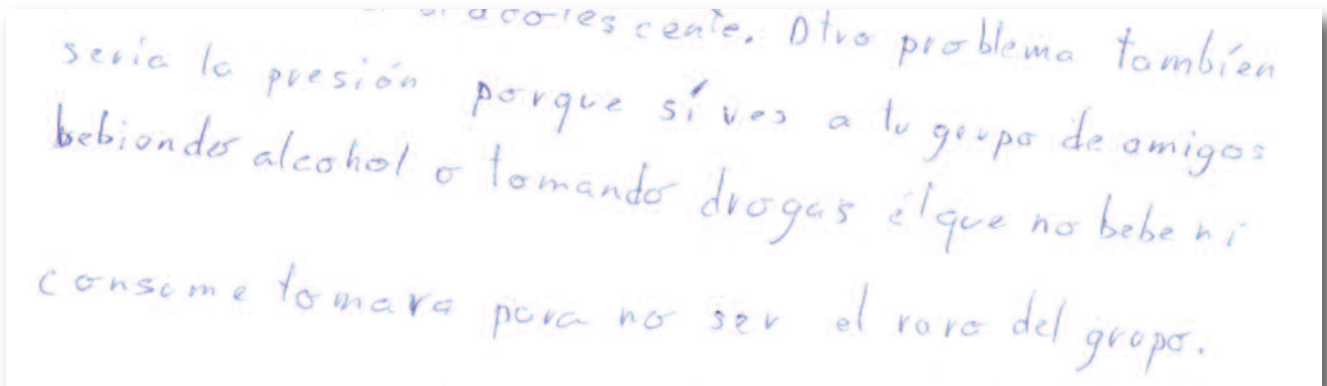 adolescente. Otro problema también
sería la presión porque sí ves a tu grupo de amigos
bebiendo alcohol o tomando drogas élque no bebe ni
consume tomara para no ser el raro del grupo.